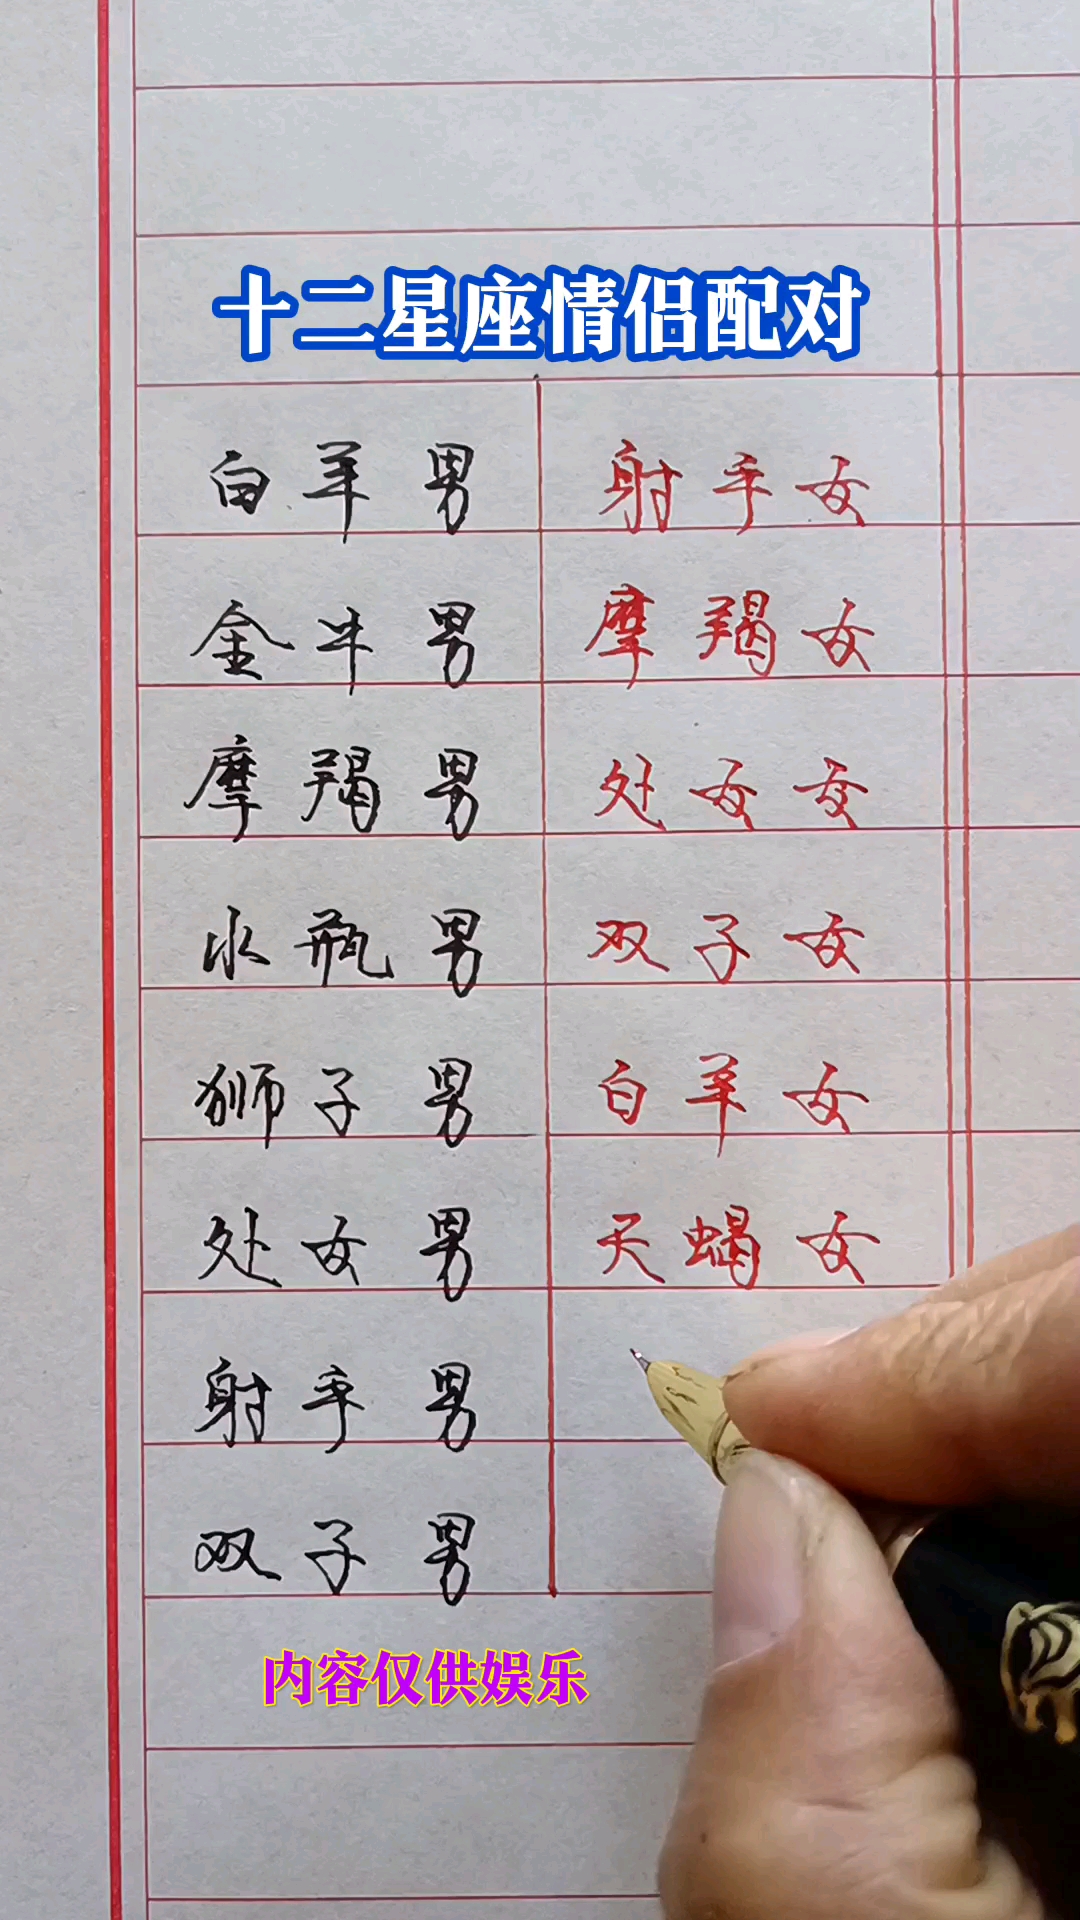 十二星座情侣配对
白羊男 射手女
金牛男 摩羯女
摩羯男 处女女
水瓶男 双子女
狮子男 白羊女
处女男 天蝎女
射手男
双子男
内容仅供娱乐